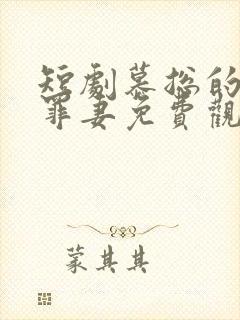 短劇慕總的
罪妻免費觀
蒙其其